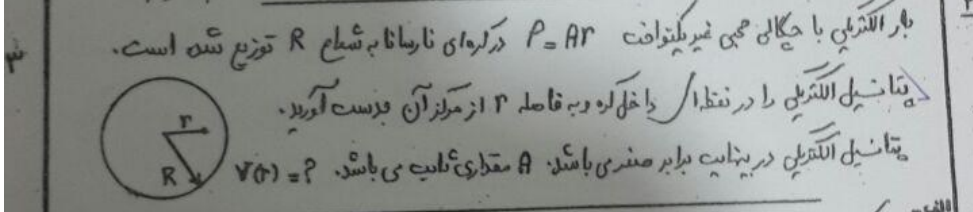 بار الکتریکی با چگالی حجمی غیر یکنواخت ρ = Ar در کره‌ای نارسانا به شعاع R توزیع شده است.
پتانسیل الکتریکی را در نقطه‌ای داخل کره و به فاصله r از مرکز آن بدست آورید.
پتانسیل الکتریکی در بینهایت برابر صفر می باشد. A مقداری ثابت می باشد. V(r) = ?
r
R